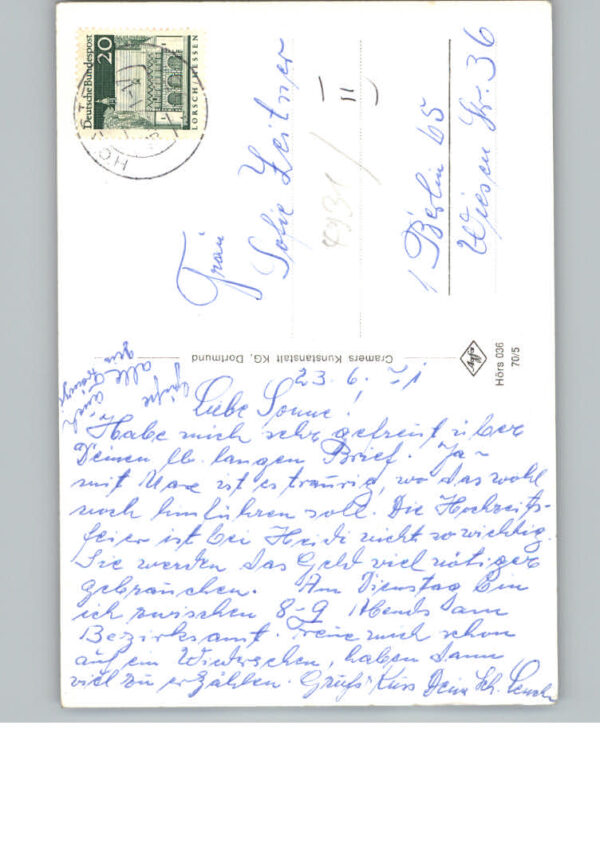 Deutsche Bundespost
20
LORSCH/HESSEN
Frau
Sofie Zeitner
II
1 Berlin 65
Wiesen Str. 36
Cramers Kunstanstalt KG, Dortmund
Agfa
Hörs 036
70/5
23. 6. 71
Liebe Sonne!
Habe mich sehr gefreut über
Deinen lb. langen Brief. Ja -
mit Maxe ist es traurig, wo das wohl
noch hinführen soll. Die Hochzeits-
feier ist bei Heidi nicht so wichtig.
Sie werden das Geld viel nötiger
gebrauchen. Am Dienstag bin
ich zwischen 8-9 Abends am
Bezirksamt. Freue mich schon
auf ein Wiedersehen, haben dann
viel zu erzählen. Gruß + Kuss Deine Sch.
Grüße
auch
alle